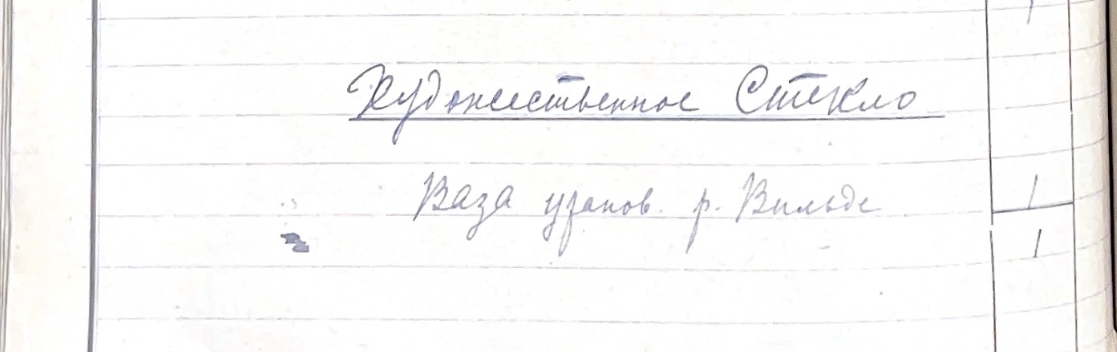 1
Художественное Стекло
Ваза уранов. р. Вильде 1
1